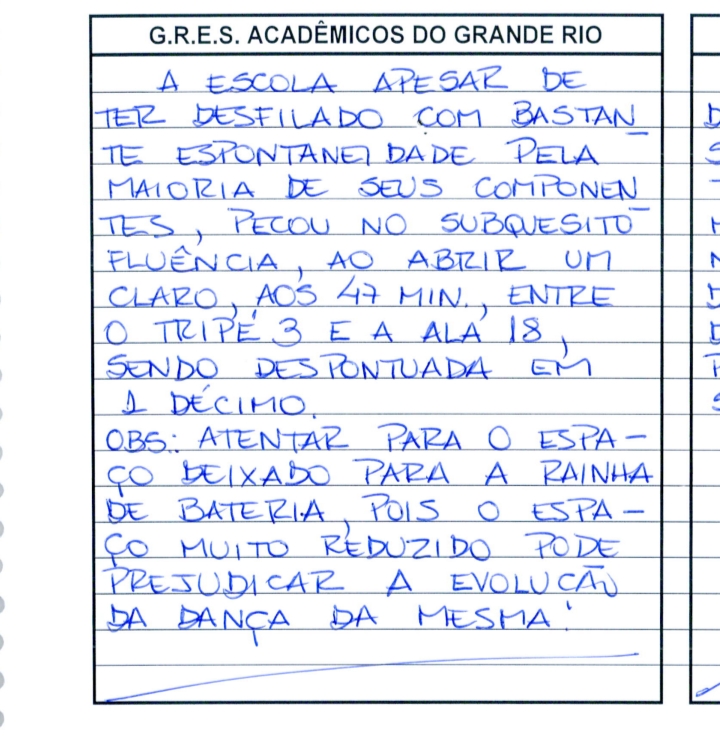 G.R.E.S. ACADÊMICOS DO GRANDE RIO
A ESCOLA APESAR DE
TER DESFILADO COM BASTAN
TE ESPONTANEIDADE PELA
MAIORIA DE SEUS COMPONEN
TES, PECOU NO SUBQUESITO
FLUÊNCIA, AO ABRIR UM
CLARO, AOS 47 MIN., ENTRE
O TRIPÉ 3 E A ALA 18,
SENDO DESPONTUADA EM
1 DÉCIMO.
OBS: ATENTAR PARA O ESPA-
ÇO DEIXADO PARA A RAINHA
DE BATERIA, POIS O ESPA-
ÇO MUITO REDUZIDO PODE
PREJUDICAR A EVOLUCÃO
DA DANÇA DA MESMA!